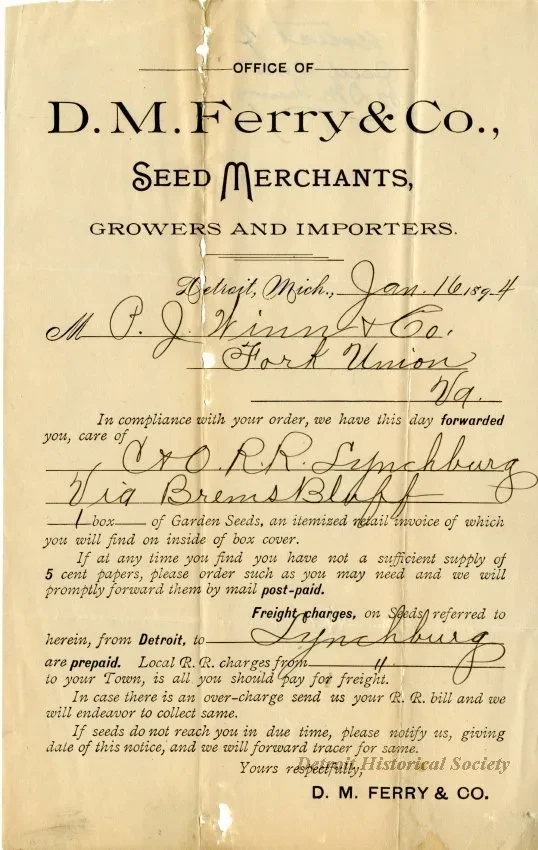 OFFICE OF
D. M. Ferry & Co.,
SEED MERCHANTS,
GROWERS AND IMPORTERS.
Detroit, Mich., Jan. 16 1894
M P. J. Winn & Co.
Fork Union
Va.
In compliance with your order, we have this day forwarded
you, care of
C & O. R. R. Lynchburg
Via Brems Bluff
1 box of Garden Seeds, an itemized retail invoice of which
you will find on inside of box cover.
If at any time you find you have not a sufficient supply of
5 cent papers, please order such as you may need and we will
promptly forward them by mail post-paid.
Freight charges, on Seeds referred to
herein, from Detroit, to Lynchburg
are prepaid. Local R. R. charges from "
to your Town, is all you should pay for freight.
In case there is an over-charge send us your R. R. bill and we
will endeavor to collect same.
If seeds do not reach you in due time, please notify us, giving
date of this notice, and we will forward tracer for same.
Yours respectfully,
Detroit Historical Society
D. M. FERRY & CO.